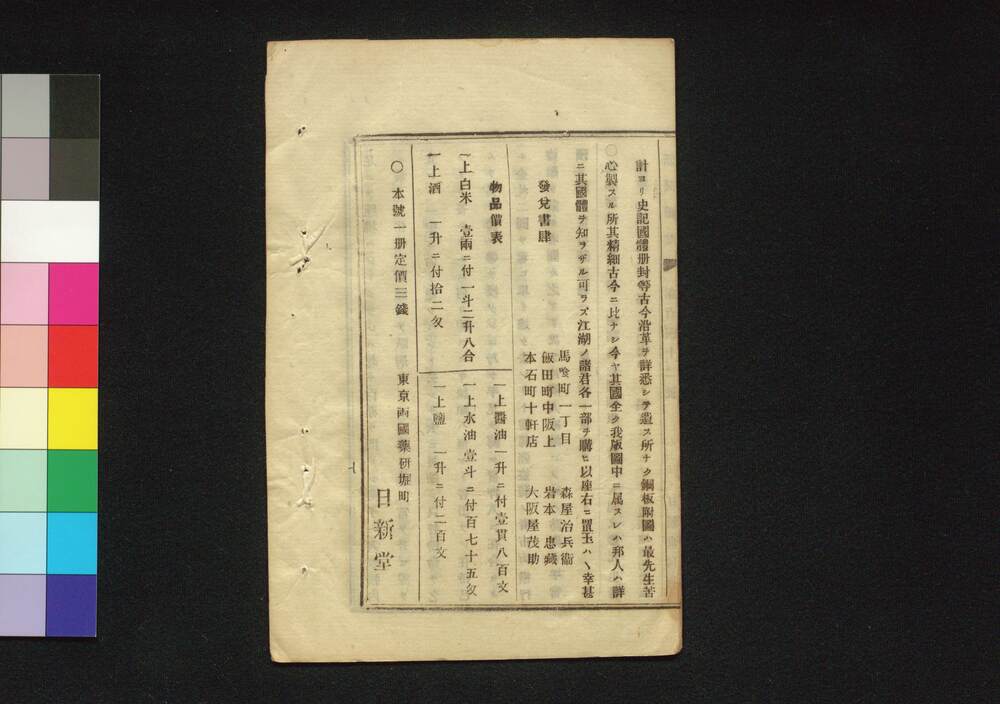 計ヨリ史記國體册封等古今沿革ヲ詳悉シテ遺ス所ナク銅板附圖ハ最先生苦
心製スル所其精細古今ニ比ナシ今ヤ其國全ク我版圖中ニ属スレハ邦人ハ詳
ニ其國體ヲ知ラザル可ラズ江湖ノ諸君各一部ヲ購ヒ以座右ニ置玉ハヽ幸甚
發兌書肆
馬喰町一丁目 森屋治兵衞
飯田町中阪上 岩本忠藏
本石町十軒店 大阪屋茂助
物品價表
一上白米 壹兩ニ付一斗二升八合
一上酒 一升ニ付拾二匁
一上醬油一升ニ付壹貫八百文
一上水油壹斗ニ付百七十五匁
一上鹽 一升ニ付二百文
〇 本號一册定價三錢
東京両國藥研堀町
日新堂